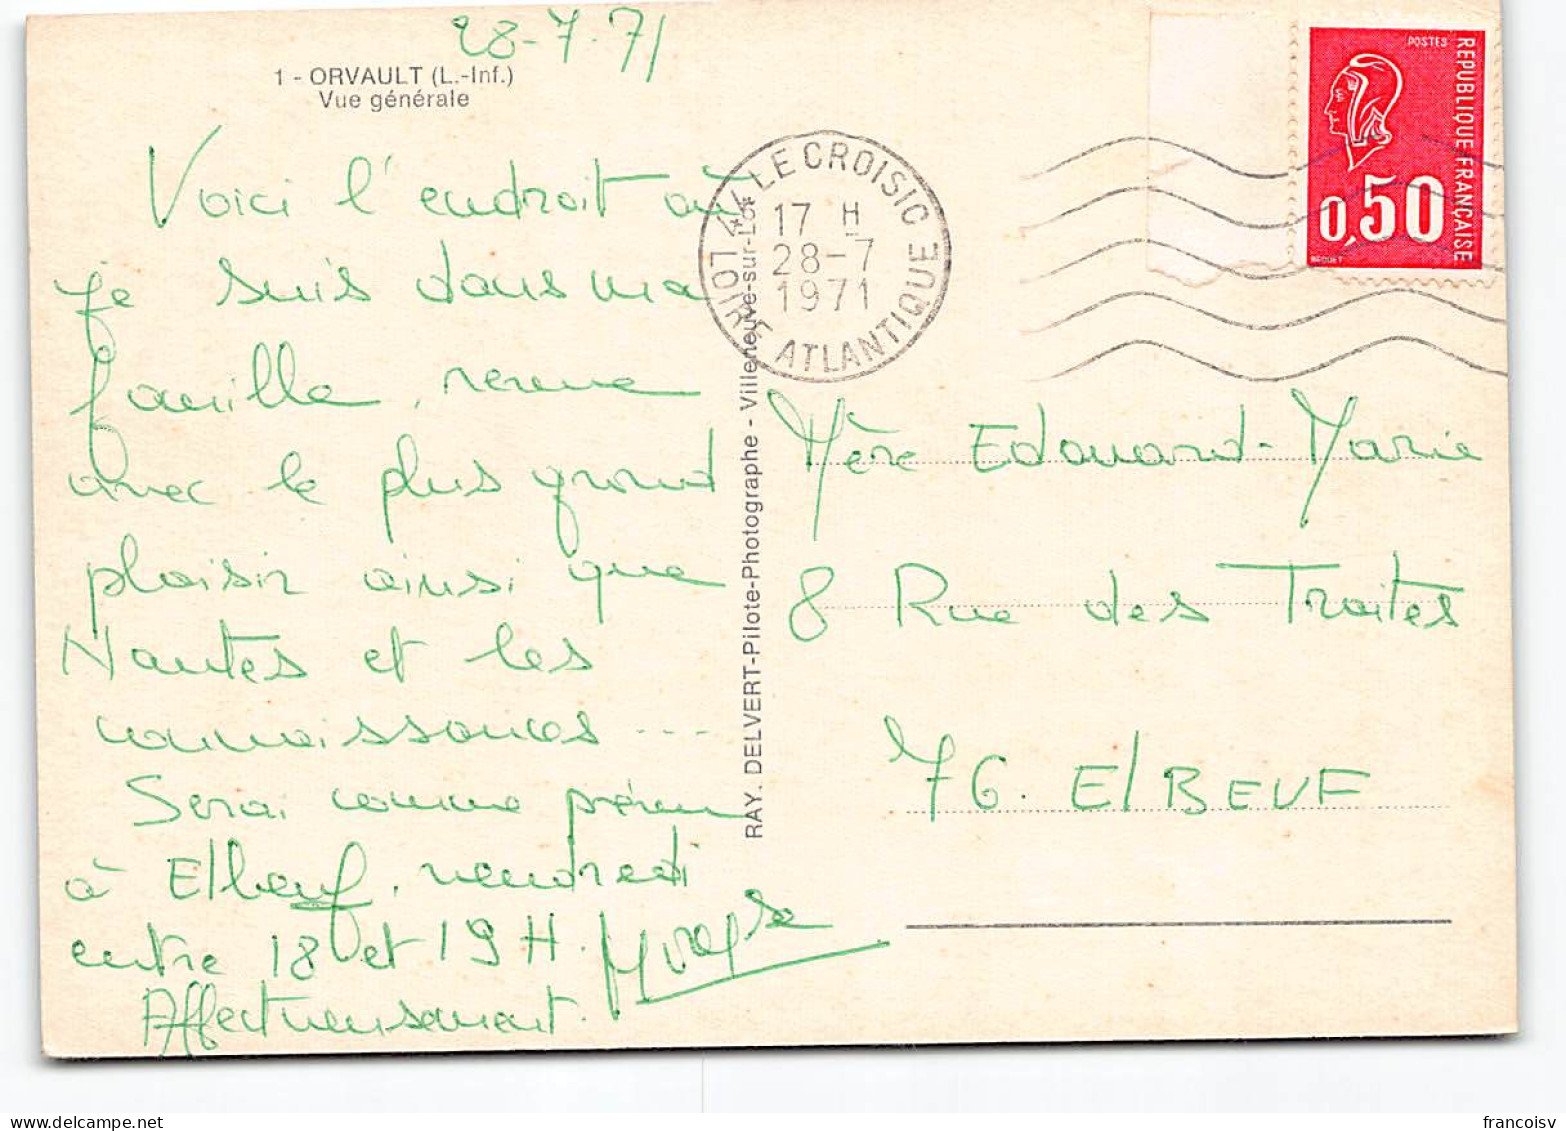 28-7-71
1 - ORVAULT (L.-Inf.)
Vue générale
Voici l'endroit où
je suis dans ma
famille, revenue
avec le plus grand
plaisir ainsi que
Nantes et les
connaissances ...
Serai comme prévu
à Elbeuf, vendredi
entre 18 et 19 H.
Affectueusement.
RAY. DELVERT-Pilote-Photographe - Villeneuve-sur-Lot
44 LE CROISIC
17 H
28-7
1971
LOIRE ATLANTIQUE
POSTES
REPUBLIQUE FRANÇAISE
0,50
BEQUET
Mère Edouard-Marie
8 Rue des Traites
76. ElBEUF
delcampe.net
francoisv